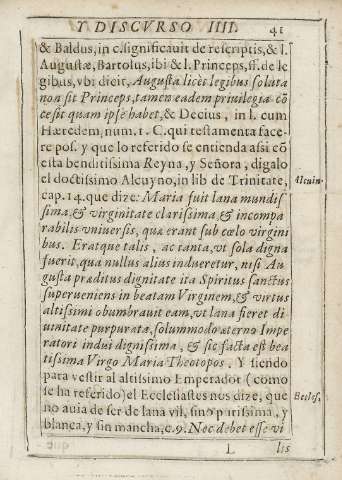 Y DISCVRSO IIII. 41
& Baldus, in c. significauit de rescriptis, & l.
Augustæ, Bartolus, ibi & l. Princeps, ff. de le
gibus, vbi dicit, Augusta licèt legibus soluta
non sit Princeps, tamen eadem priuilegia cō
cesit quam ipse habet, & Decius, in l. cum
Hæredem, num. 1. C. qui testamenta face-
re pos. y que lo referido se entienda assi cō
esta benditissima Reyna, y Señora, digalo
el doctissimo Alcuyno, in lib de Trinitate,
Alcuin.
cap. 14. que dize: Maria fuit lana mundis
sima, & virginitate clarissima, & incompa
rabilis vniuersis, quæ erant sub cœlo virgini
bus. Eratque talis, ac tanta, vt sola digna
fuerit, qua nullus alius indueretur, nisi Au
gusta præditus dignitate ita Spiritus sanctus
superueniens in beatam Virginem, & virtus
altissimi obumbrauit eam, vt lana fieret di
uinitate purpurata, solummodo æterno Impe
ratori indui dignissima, & sic facta est bea
tissima Virgo Maria Theotopos. Y siendo
para vestir al altisimo Emperador (como
se ha referido) el Ecclesiastes nos dize, que
Eccles,
no auia de ser de lana vil, sino purissima, y
blanca, y sin mancha, c. 9. Nec debet esse vi
L lis